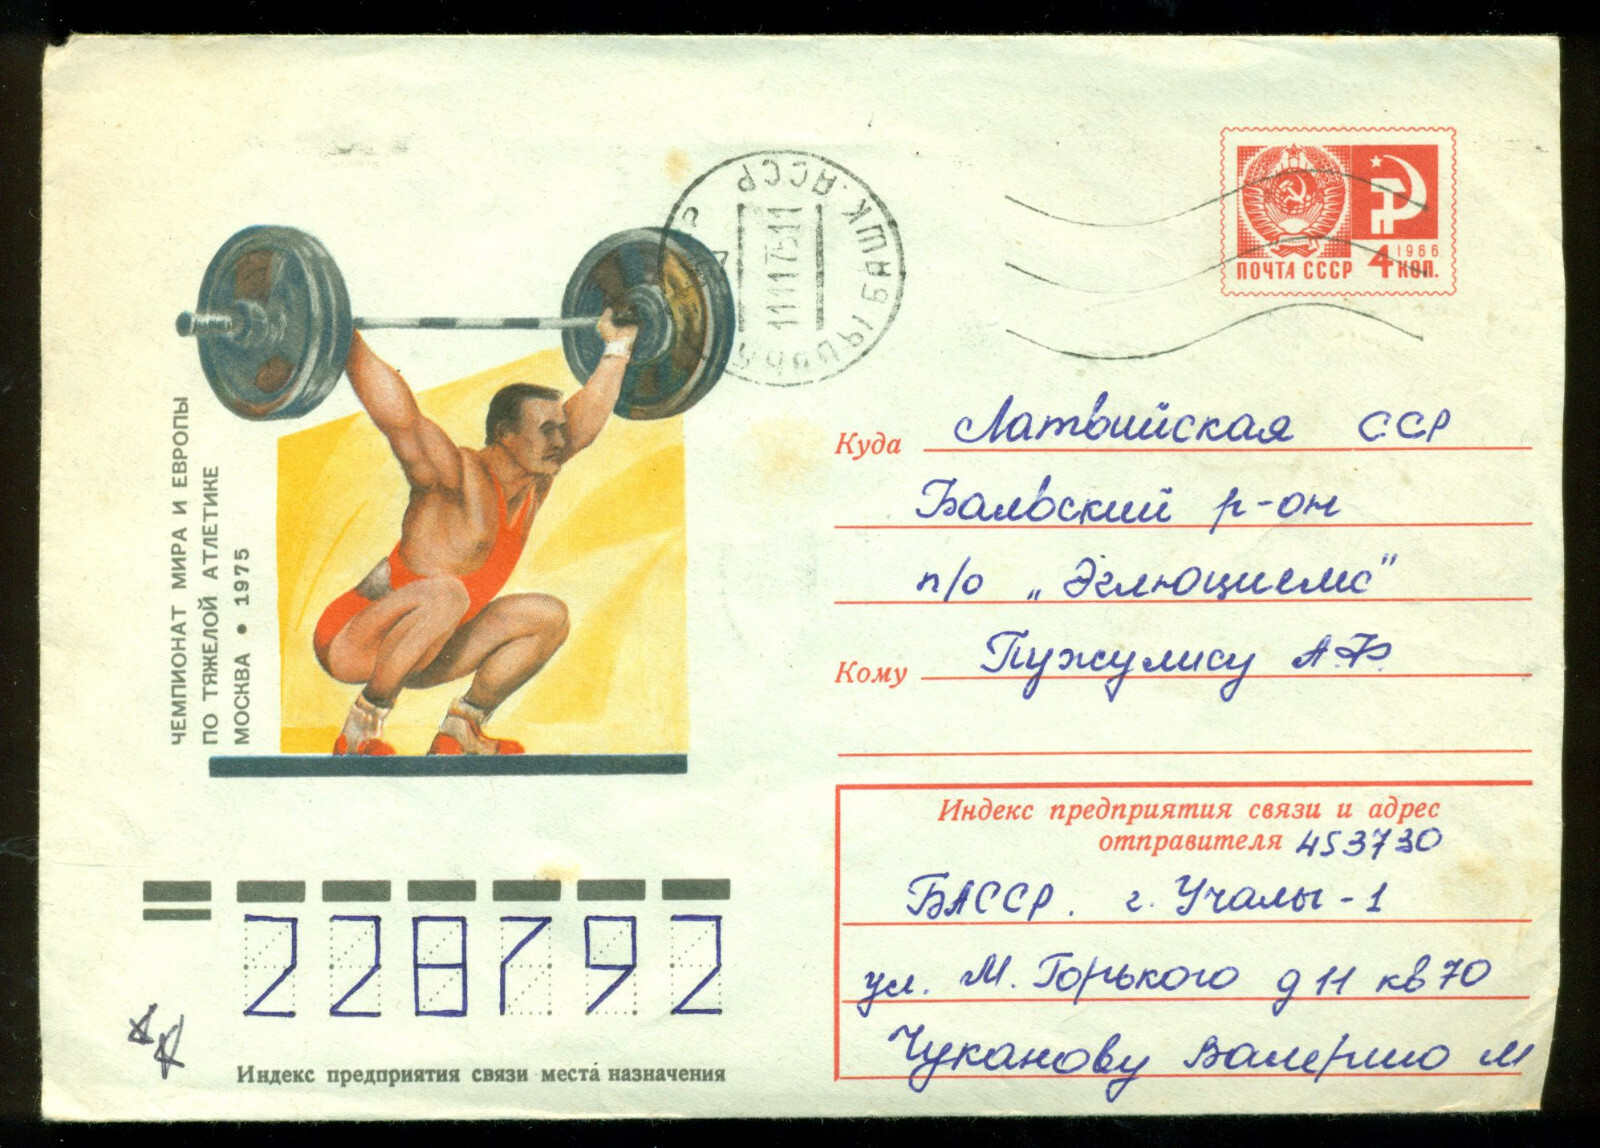 ЧЕМПИОНАТ МИРА И ЕВРОПЫ
ПО ТЯЖЕЛОЙ АТЛЕТИКЕ
МОСКВА • 1975
ПОЧТА СССР
1966
4 КОП.
Куда Латвийская ССР
Балвский р-он
п/о „Эглюциемс"
Кому Пужулису А.Ф.
Индекс предприятия связи и адрес
отправителя 453730
БАССР. г. Учалы-1
ул. М. Горького д 11 кв 70
Чуканову Валерию М
228792
Индекс предприятия связи места назначения